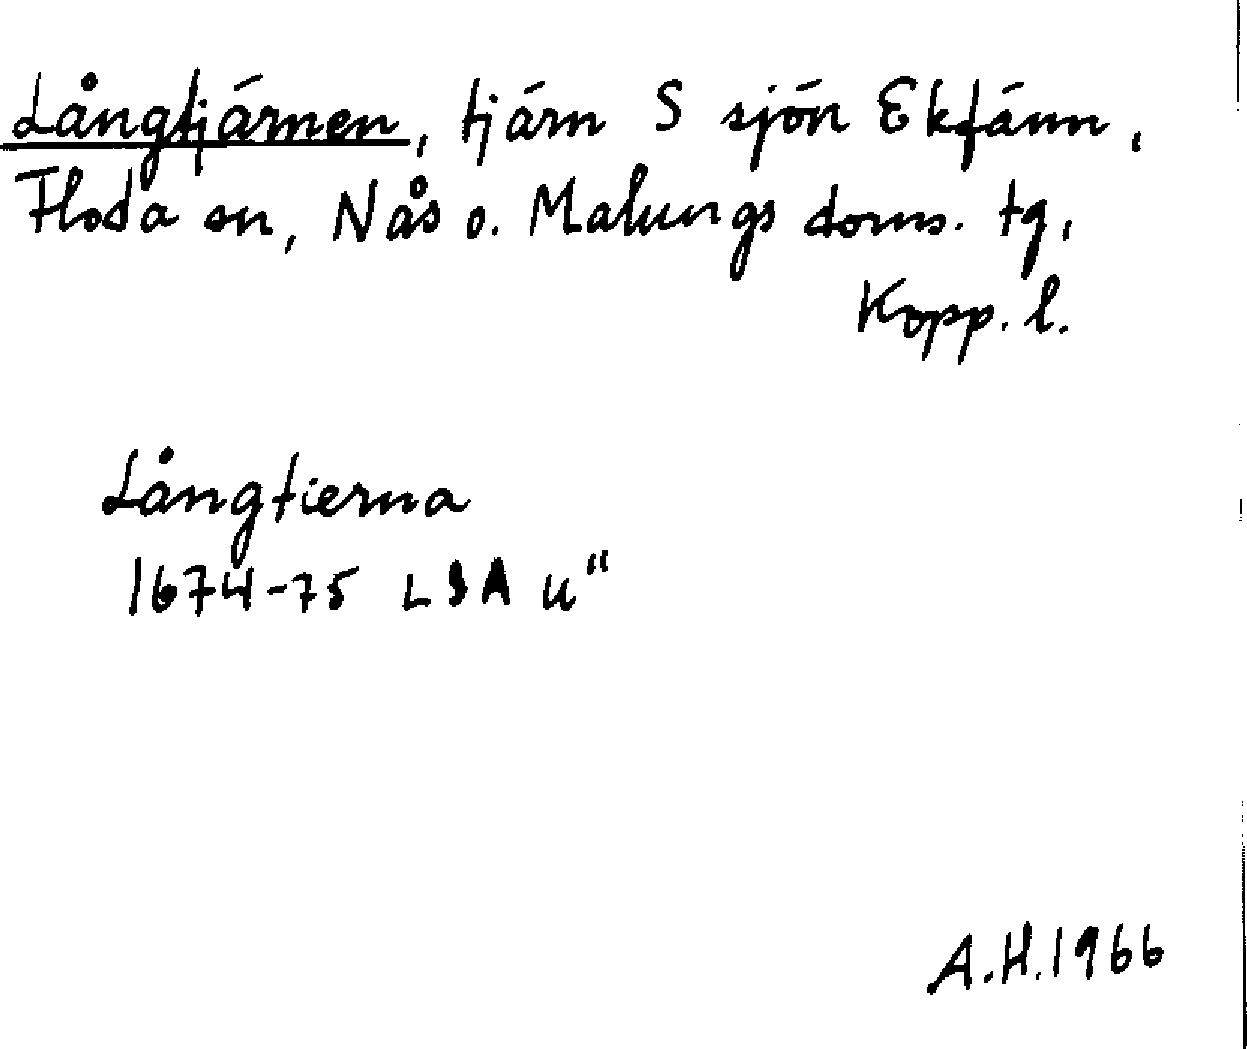 Långtjärnen, tjärn S sjön Ekfänn,
Floda sn, Nås o. Malungs doms. tg,
Kopp. l.
Långtierna
1674-75 LSA u"
A.H.1966